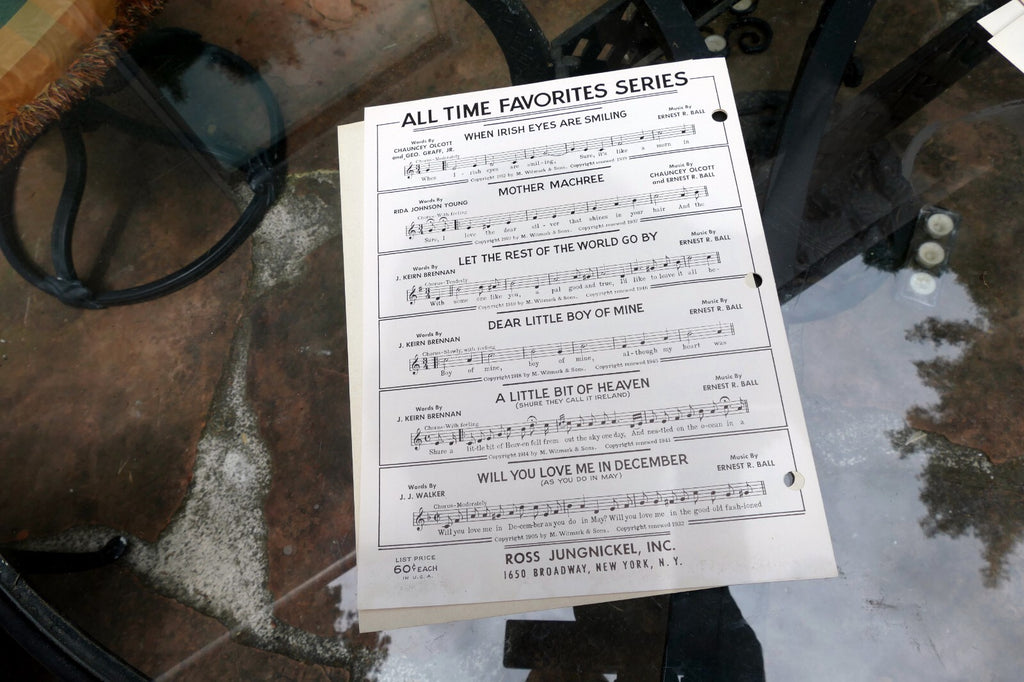 ALL TIME FAVORITES SERIES
WHEN IRISH EYES ARE SMILING
Words By
CHAUNCEY OLCOTT
and GEO. GRAFF, JR.
Music By
ERNEST R. BALL
Chorus-Moderately
When I - rish eyes are smil-ing, Sure, it's like a morn in
Copyright 1912 by M. Witmark & Sons. Copyright renewed
MOTHER MACHREE
Words By
RIDA JOHNSON YOUNG
Music By
CHAUNCEY OLCOTT
and ERNEST R. BALL
Chorus-With feeling
Sure, I love the dear sil - ver that shines in your hair And the
Copyright 1910 by M. Witmark & Sons. Copyright renewed
LET THE REST OF THE WORLD GO BY
Words By
J. KEIRN BRENNAN
Music By
ERNEST R. BALL
Chorus-Tenderly
With some one like you, a pal good and true, I'd like to leave it all be-
Copyright 1919 by M. Witmark & Sons. Copyright renewed 1946
DEAR LITTLE BOY OF MINE
Words By
J. KEIRN BRENNAN
Music By
ERNEST R. BALL
Chorus-Slowly, with feeling
Boy of mine, boy of mine, al-though my heart was
Copyright 1918 by M. Witmark & Sons. Copyright renewed 1945
A LITTLE BIT OF HEAVEN
(SHURE THEY CALL IT IRELAND)
Words By
J. KEIRN BRENNAN
Music By
ERNEST R. BALL
Chorus-With feeling
Share a lit-tle bit of Heav-en fell from out the sky one day, And nes-tled on the o-cean in a
Copyright 1914 by M. Witmark & Sons. Copyright renewed 1941
WILL YOU LOVE ME IN DECEMBER
(AS YOU DO IN MAY)
Words By
J. J. WALKER
Music By
ERNEST R. BALL
Chorus-Moderately
Will you love me in De-cem-ber as you do in May? Will you love me in the good old fash-ioned
Copyright 1905 by M. Witmark & Sons. Copyright renewed 1932
LIST PRICE
60¢ EACH
IN U.S.A.
ROSS JUNGNICKEL, INC.
1650 BROADWAY, NEW YORK, N. Y.